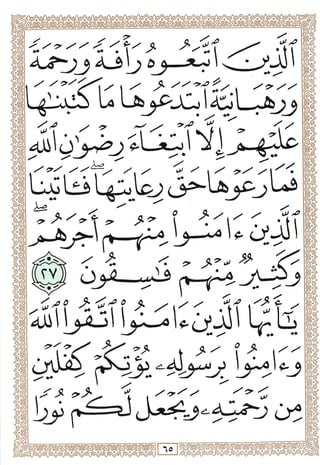 ٱلَّذِينَ ٱتَّبَعُوهُ رَأْفَةً وَرَحْمَةً
وَرَهْبَانِيَّةً ٱبْتَدَعُوهَا مَا كَتَبْنَٰهَا
عَلَيْهِمْ إِلَّا ٱبْتِغَآءَ رِضْوَٰنِ ٱللَّهِ
فَمَا رَعَوْهَا حَقَّ رِعَايَتِهَا ۖ فَـَٔاتَيْنَا
ٱلَّذِينَ ءَامَنُوا۟ مِنْهُمْ أَجْرَهُمْ ۖ
وَكَثِيرٌ مِّنْهُمْ فَٰسِقُونَ ٢٧
يَٰٓأَيُّهَا ٱلَّذِينَ ءَامَنُوا۟ ٱتَّقُوا۟ ٱللَّهَ
وَءَامِنُوا۟ بِرَسُولِهِۦ يُؤْتِكُمْ كِفْلَيْنِ
مِن رَّحْمَتِهِۦ وَيَجْعَل لَّكُمْ نُورًا
٦٥